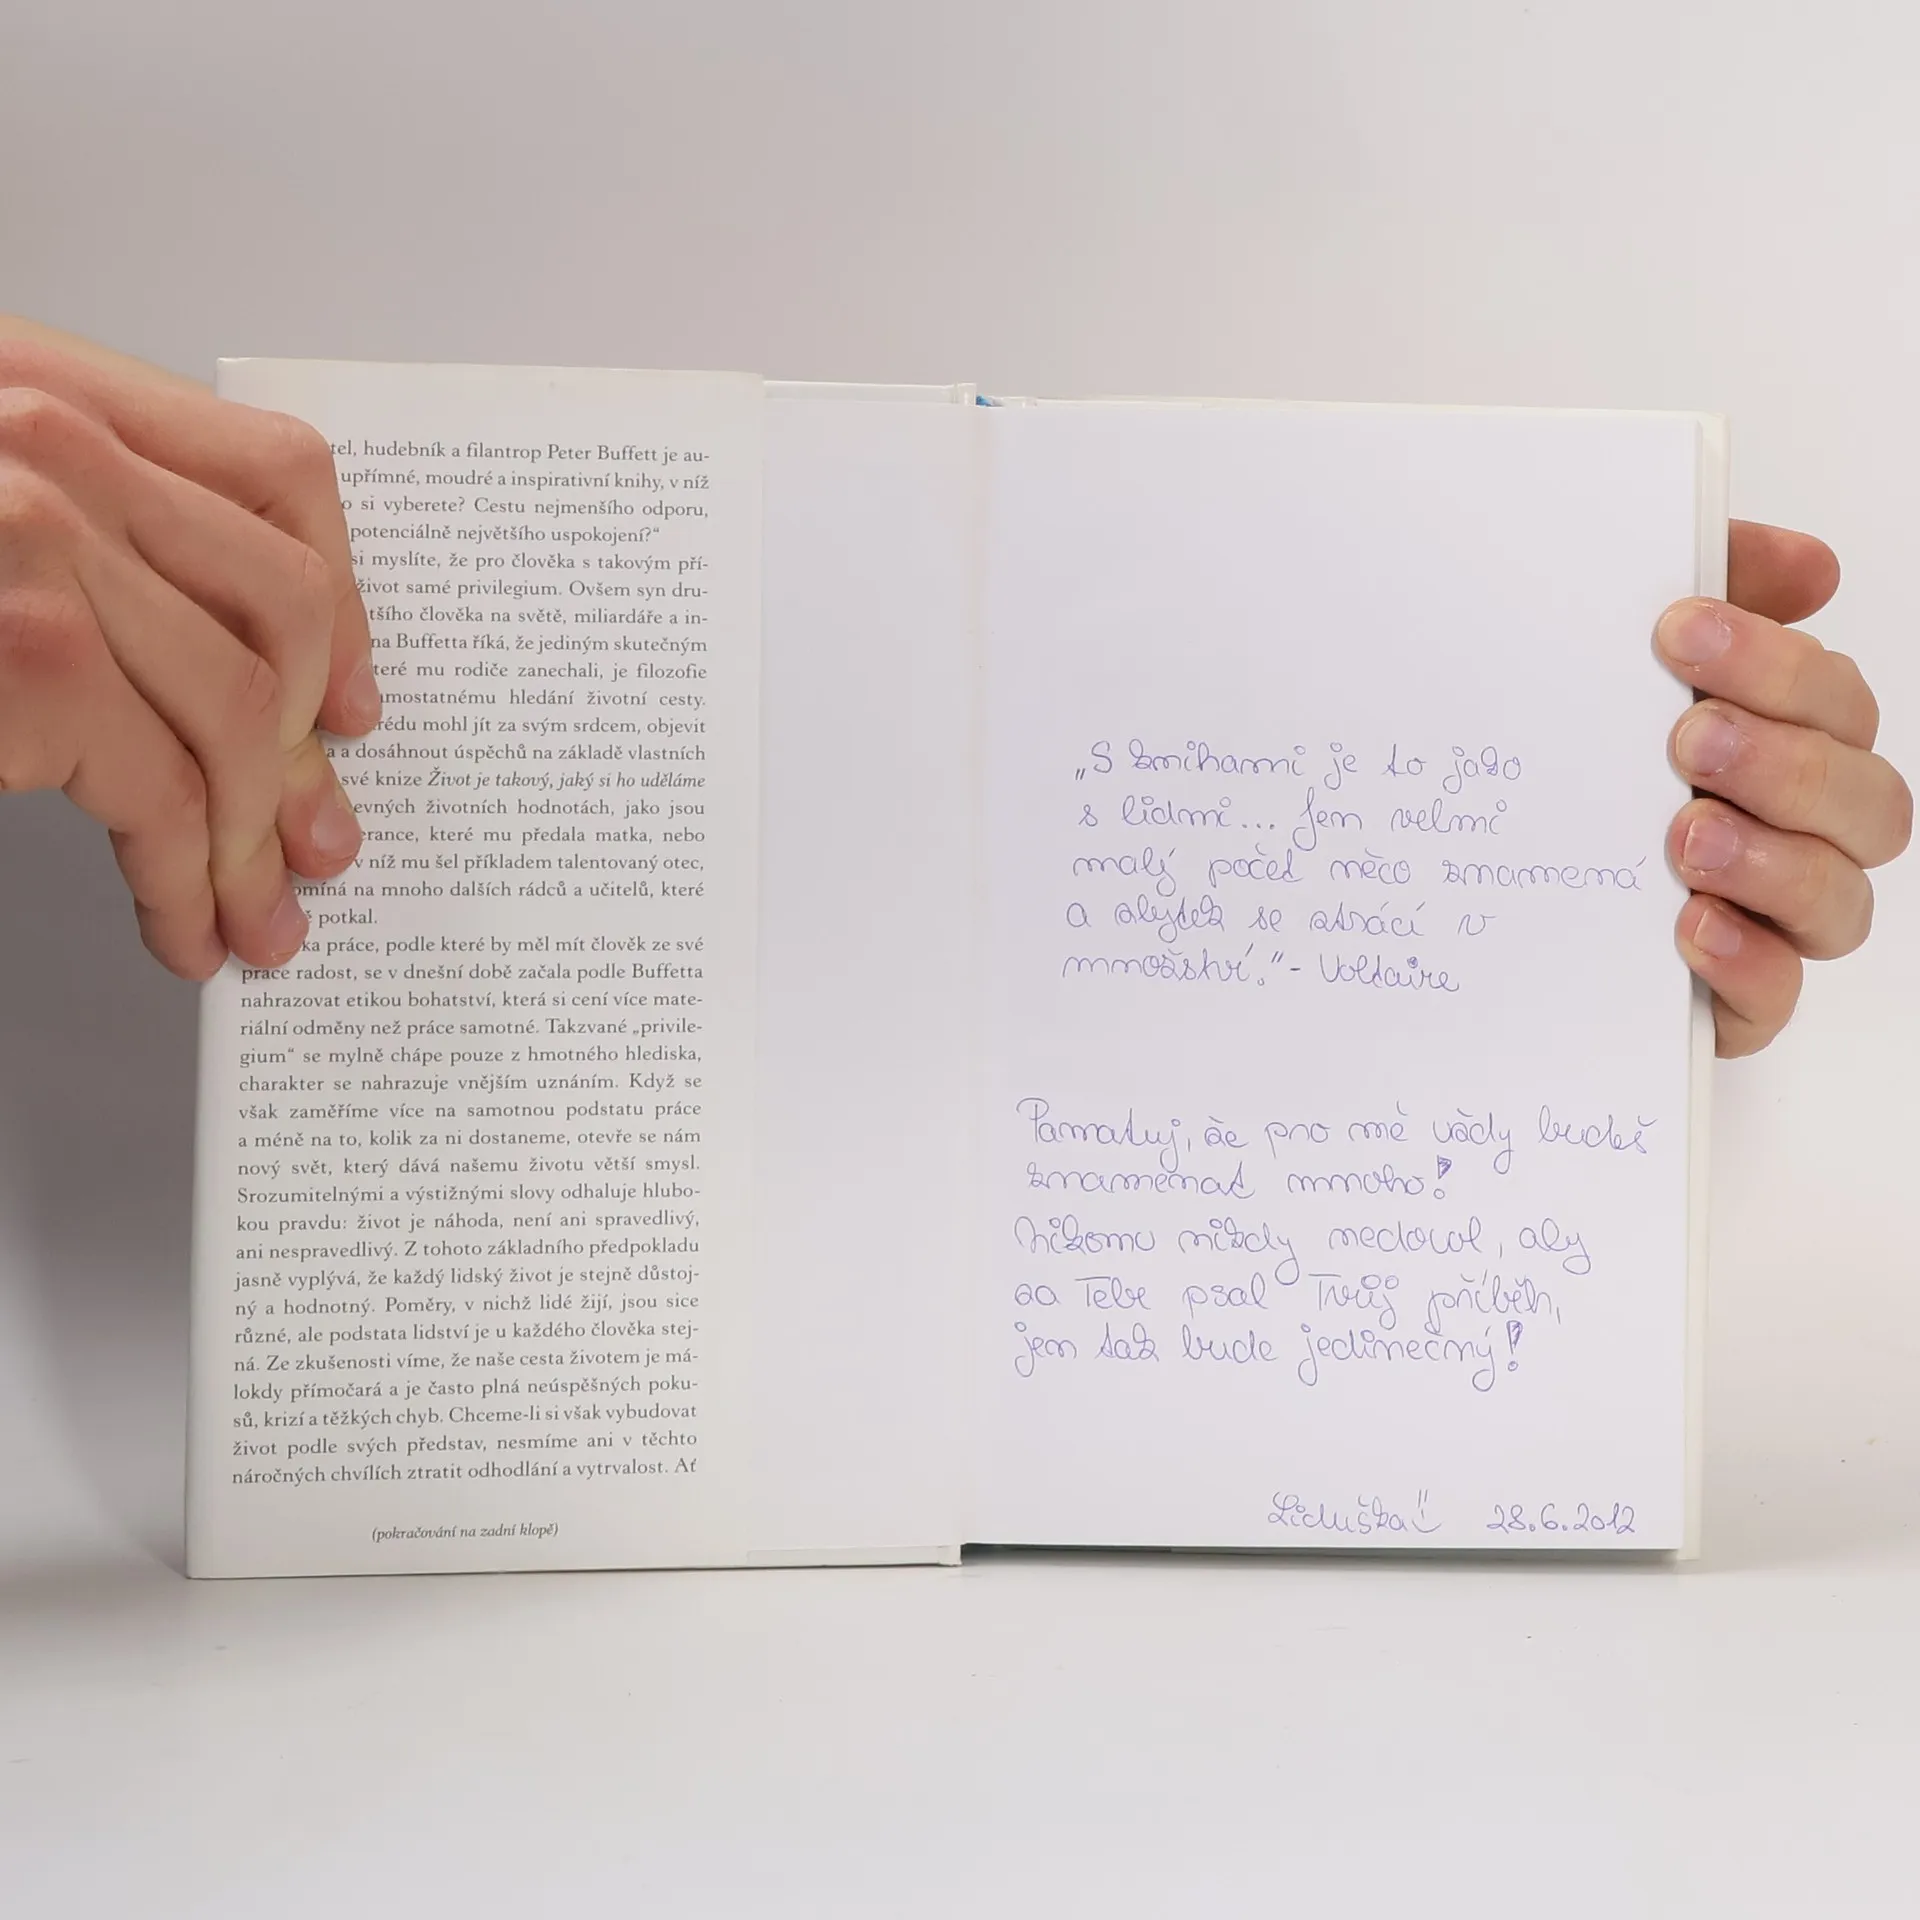 tel, hudebník a filantrop Peter Buffett je au-
upřímné, moudré a inspirativní knihy, v níž
o si vyberete? Cestu nejmenšího odporu,
potenciálně největšího uspokojení?“
si myslíte, že pro člověka s takovým pří-
život samé privilegium. Ovšem syn dru-
tšího člověka na světě, miliardáře a in-
na Buffetta říká, že jediným skutečným
teré mu rodiče zanechali, je filozofie
amostatnému hledání životní cesty.
rédu mohl jít za svým srdcem, objevit
a a dosáhnout úspěchů na základě vlastních
své knize Život je takový, jaký si ho uděláme
evných životních hodnotách, jako jsou
erance, které mu předala matka, nebo
v níž mu šel příkladem talentovaný otec,
omíná na mnoho dalších rádců a učitelů, které
ě potkal.
ka práce, podle které by měl mít člověk ze své
práce radost, se v dnešní době začala podle Buffetta
nahrazovat etikou bohatství, která si cení více mate-
riální odměny než práce samotné. Takzvané „privile-
gium“ se mylně chápe pouze z hmotného hlediska,
charakter se nahrazuje vnějším uznáním. Když se
však zaměříme více na samotnou podstatu práce
a méně na to, kolik za ni dostaneme, otevře se nám
nový svět, který dává našemu životu větší smysl.
Srozumitelnými a výstižnými slovy odhaluje hlubo-
kou pravdu: život je náhoda, není ani spravedlivý,
ani nespravedlivý. Z tohoto základního předpokladu
jasně vyplývá, že každý lidský život je stejně důstoj-
ný a hodnotný. Poměry, v nichž lidé žijí, jsou sice
různé, ale podstata lidství je u každého člověka stej-
ná. Ze zkušenosti víme, že naše cesta životem je má-
lokdy přímočará a je často plná neúspěšných poku-
sů, krizí a těžkých chyb. Chceme-li si však vybudovat
život podle svých představ, nesmíme ani v těchto
náročných chvílích ztratit odhodlání a vytrvalost. Ať
(pokračování na zadní klopě)
„S knihami je to jako
s lidmi... Jen velmi
malý počet něco znamená
a zbytek se ztrácí v
množství.“ - Voltaire
Pamatuj, že pro mě vždy budeš
znamenat mnoho!
Nikomu nikdy nedovol, aby
za Tebe psal Tvůj příběh,
jen tak bude jedinečný!
Liduška 28.6.2012